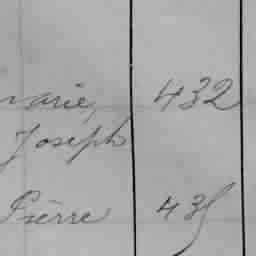 marie, 432
Joseph
Pierre 435